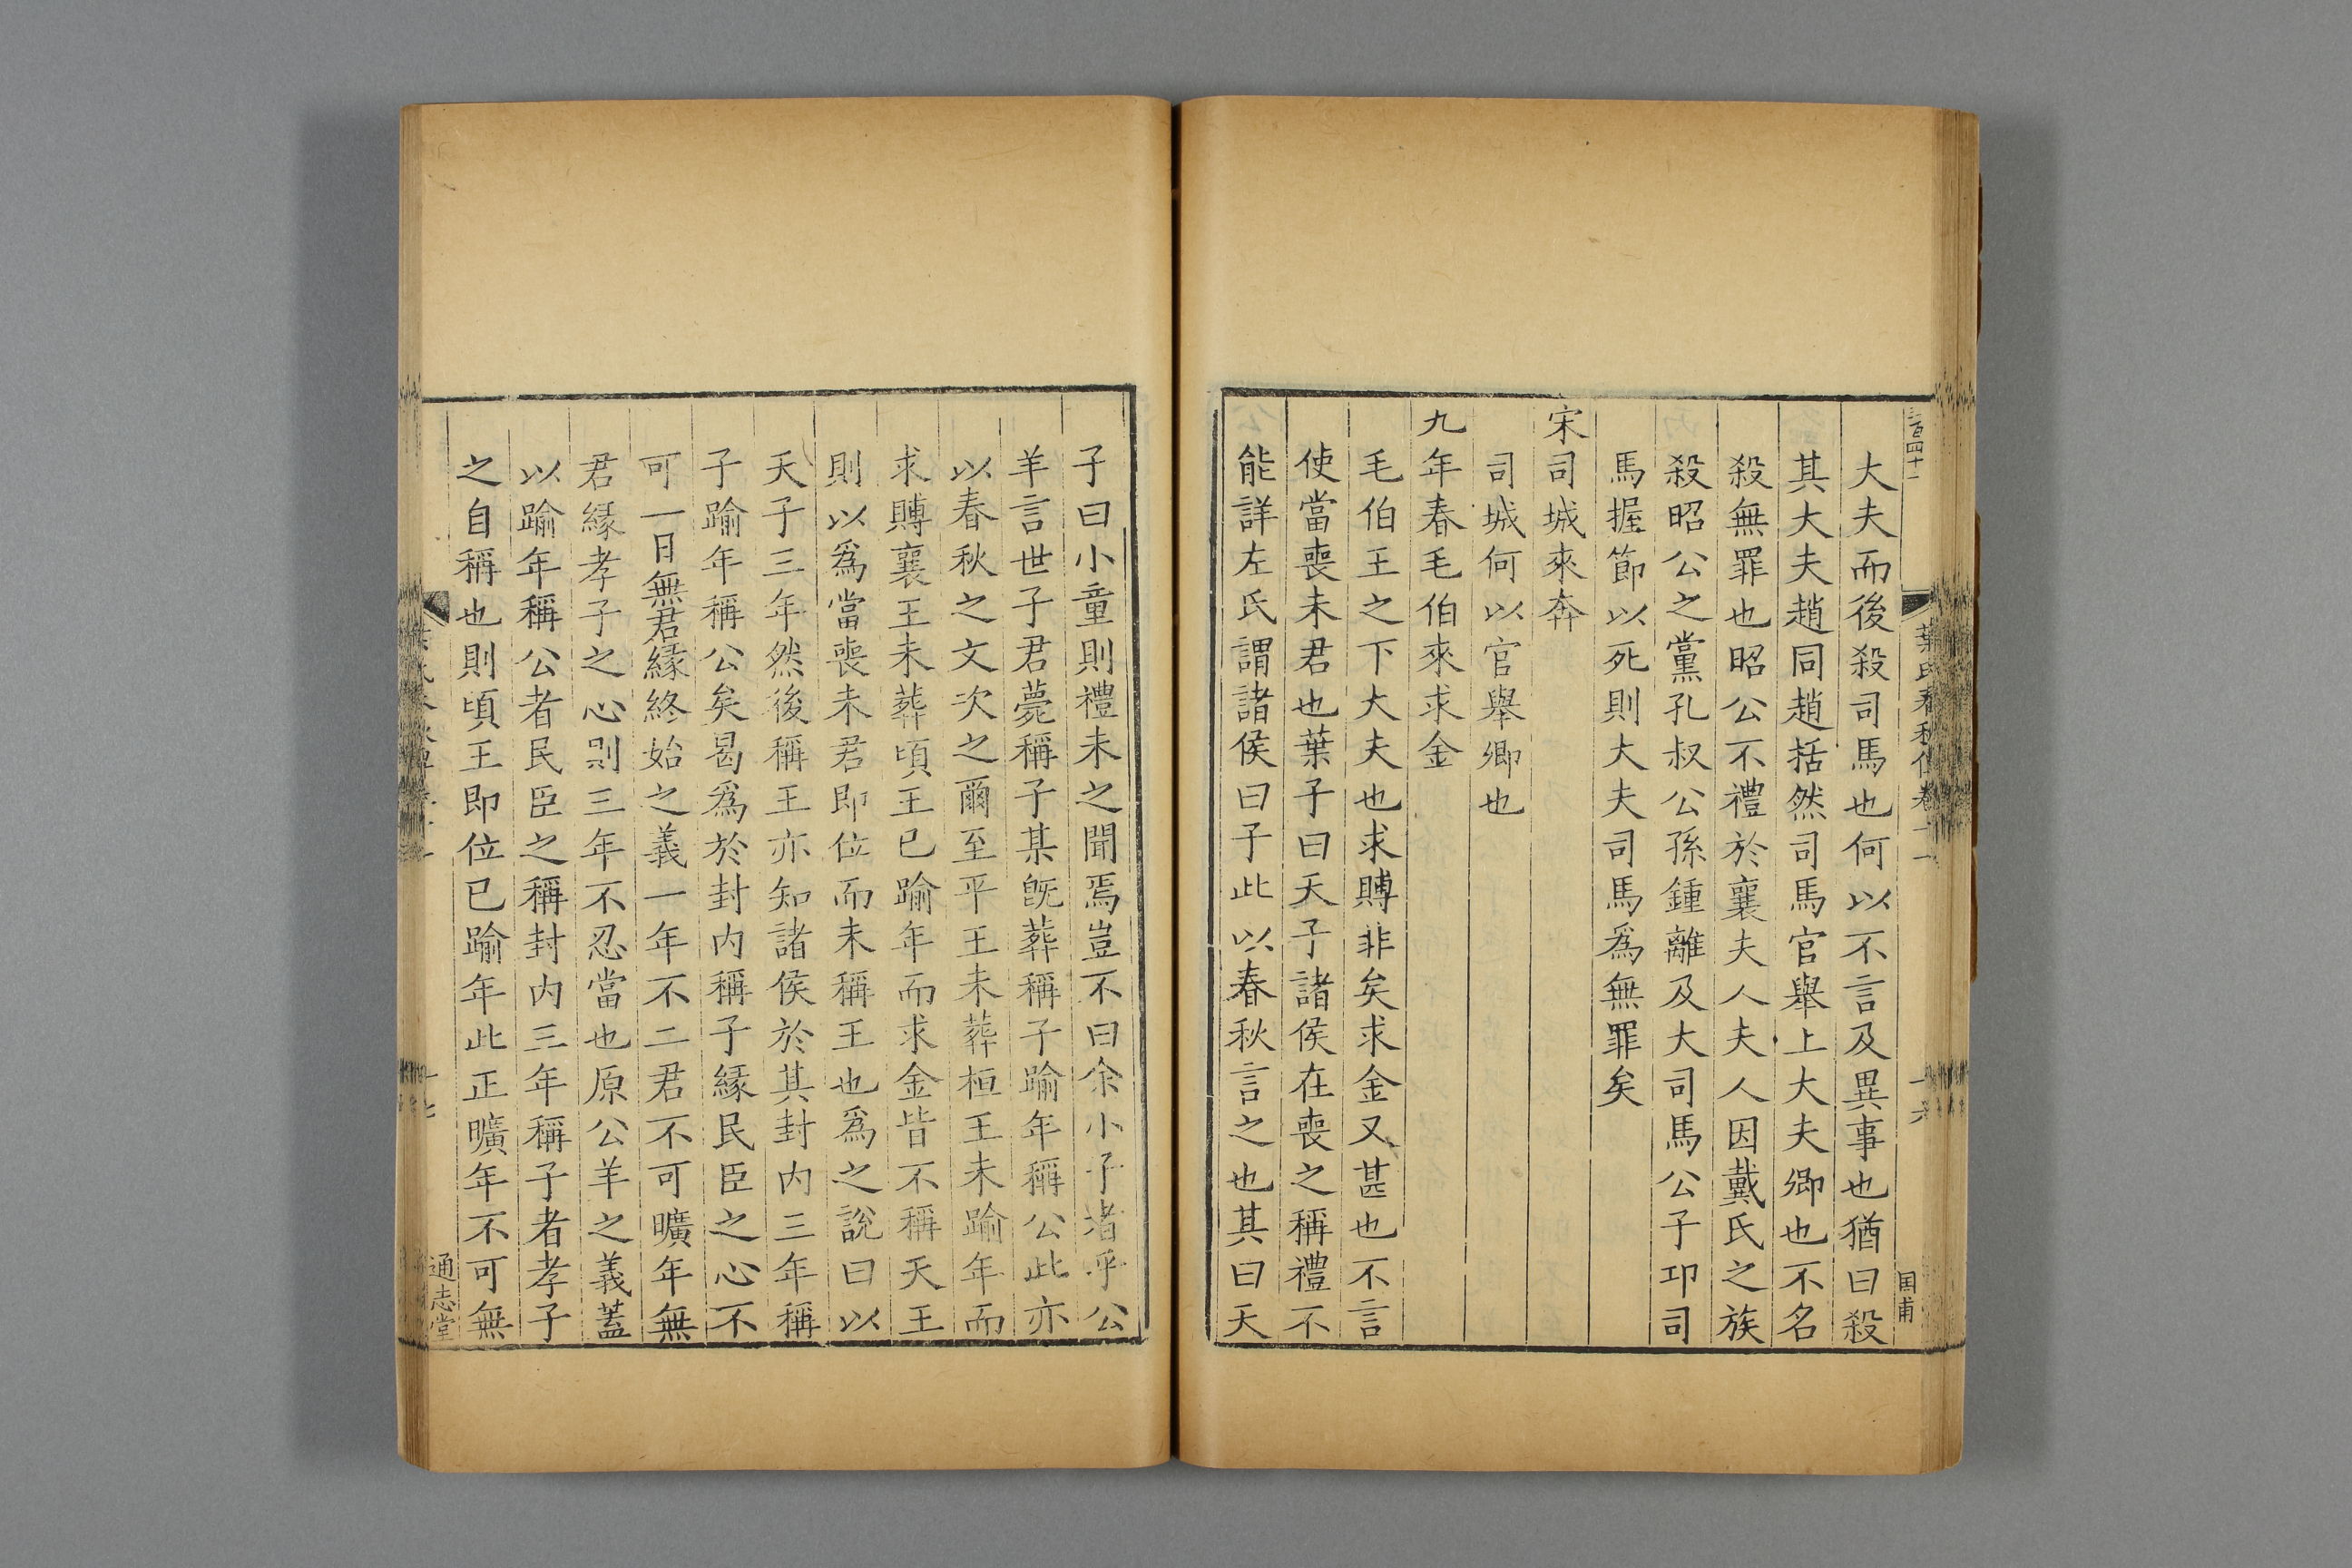 三百四十一
葉氏春秋傳卷十一
十六
国甫
大夫而後殺司馬也何以不言及異事也猶曰殺
其大夫趙同趙括然司馬官舉上大夫卿也不名
殺無罪也昭公不禮於襄夫人夫人因戴氏之族
殺昭公之黨孔叔公孫鍾離及大司馬公子卭司
馬握節以死則大夫司馬爲無罪矣
宋司城來奔
司城何以官舉卿也
九年春毛伯來求金
毛伯王之下大夫也求賻非矣求金又甚也不言
使當喪未君也葉子曰天子諸侯在喪之稱禮不
能詳左氏謂諸侯曰子此以春秋言之也其曰天
子曰小童則禮未之聞焉豈不曰余小子者乎公
羊言世子君薨稱子某旣葬稱子踰年稱公此亦
以春秋之文次之爾至平王未葬桓王未踰年而
求賻襄王未葬頃王已踰年而求金皆不稱天王
則以爲當喪未君即位而未稱王也爲之說曰以
天子三年然後稱王亦知諸侯於其封内三年稱
子踰年稱公矣曷爲於封内稱子緣民臣之心不
可一日無君緣終始之義一年不二君不可曠年無
君緣孝子之心則三年不忍當也原公羊之義蓋
以踰年稱公者民臣之稱封内三年稱子者孝子
之自稱也則頃王即位已踰年此正曠年不可無
十七
通志堂